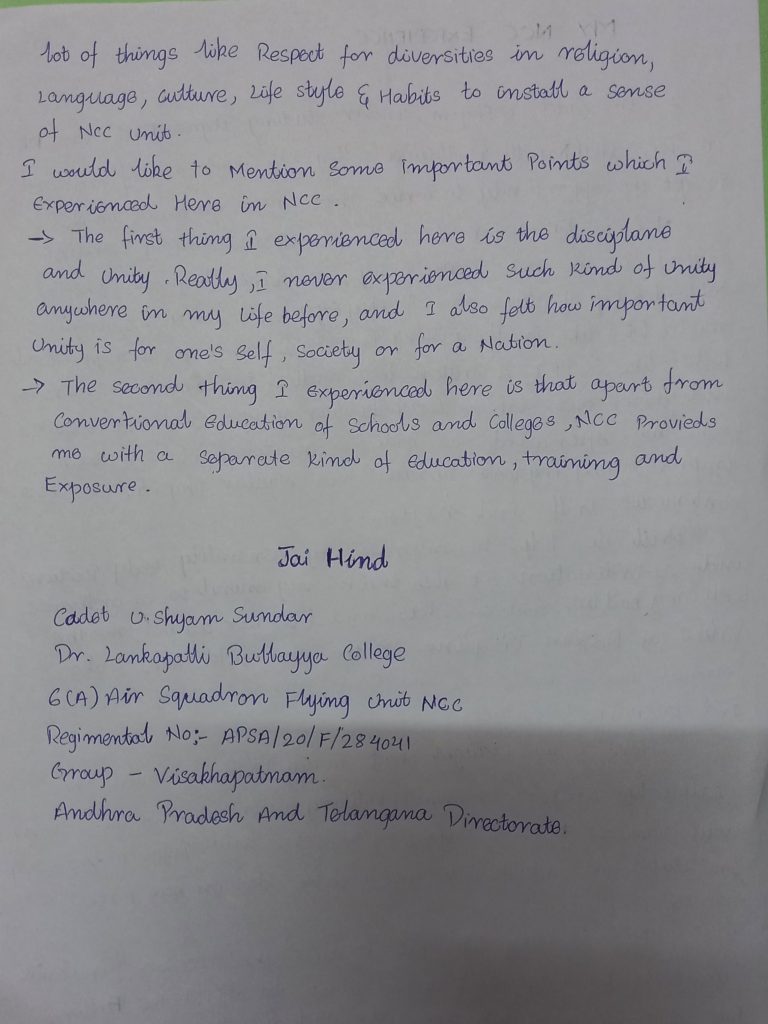 lot of things like Respect for diversities in religion,
Language, culture, Life style & Habits to install a sense
of NCC unit.
I would like to Mention Some important Points which I
Experienced Here in NCC.
→ The first thing I experienced here is the disciplane
and Unity. Really, I never experienced such kind of unity
anywhere in my life before, and I also felt how important
Unity is for one's self, society or for a Nation.
→ The second thing I experienced here is that apart from
Conventional education of schools and colleges, NCC Provieds
me with a separate kind of education, training and
Exposure.
Jai Hind
Cadet V. Shyam Sundar
Dr. Lankapalli Bullayya College
6(A) Air Squadron Flying Unit NCC
Regimental No:- APSA/20/F/284041
Group - Visakhapatnam.
Andhra Pradesh And Telangana Directorate.